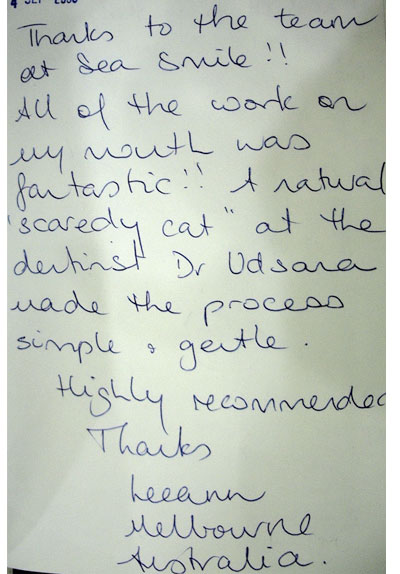 Thanks to the team
at Sea Smile!!
All of the work on
my mouth was
fantastic!! A natural
"scaredy cat" at the
dentist Dr Udsana
made the process
simple & gentle.
Highly recommended
Thanks
Leeann
Melbourne
Australia.